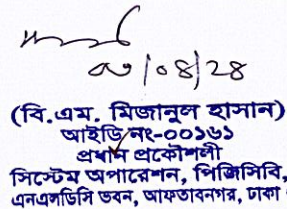 ০৩/০৪/২৪
(বি.এম. মিজানুল হাসান)
আইডি নং-০০১৬১
প্রধান প্রকৌশলী
সিস্টেম অপারেশন, পিজিসিবি,
এনএলডিসি ভবন, আফতাবনগর, ঢাকা